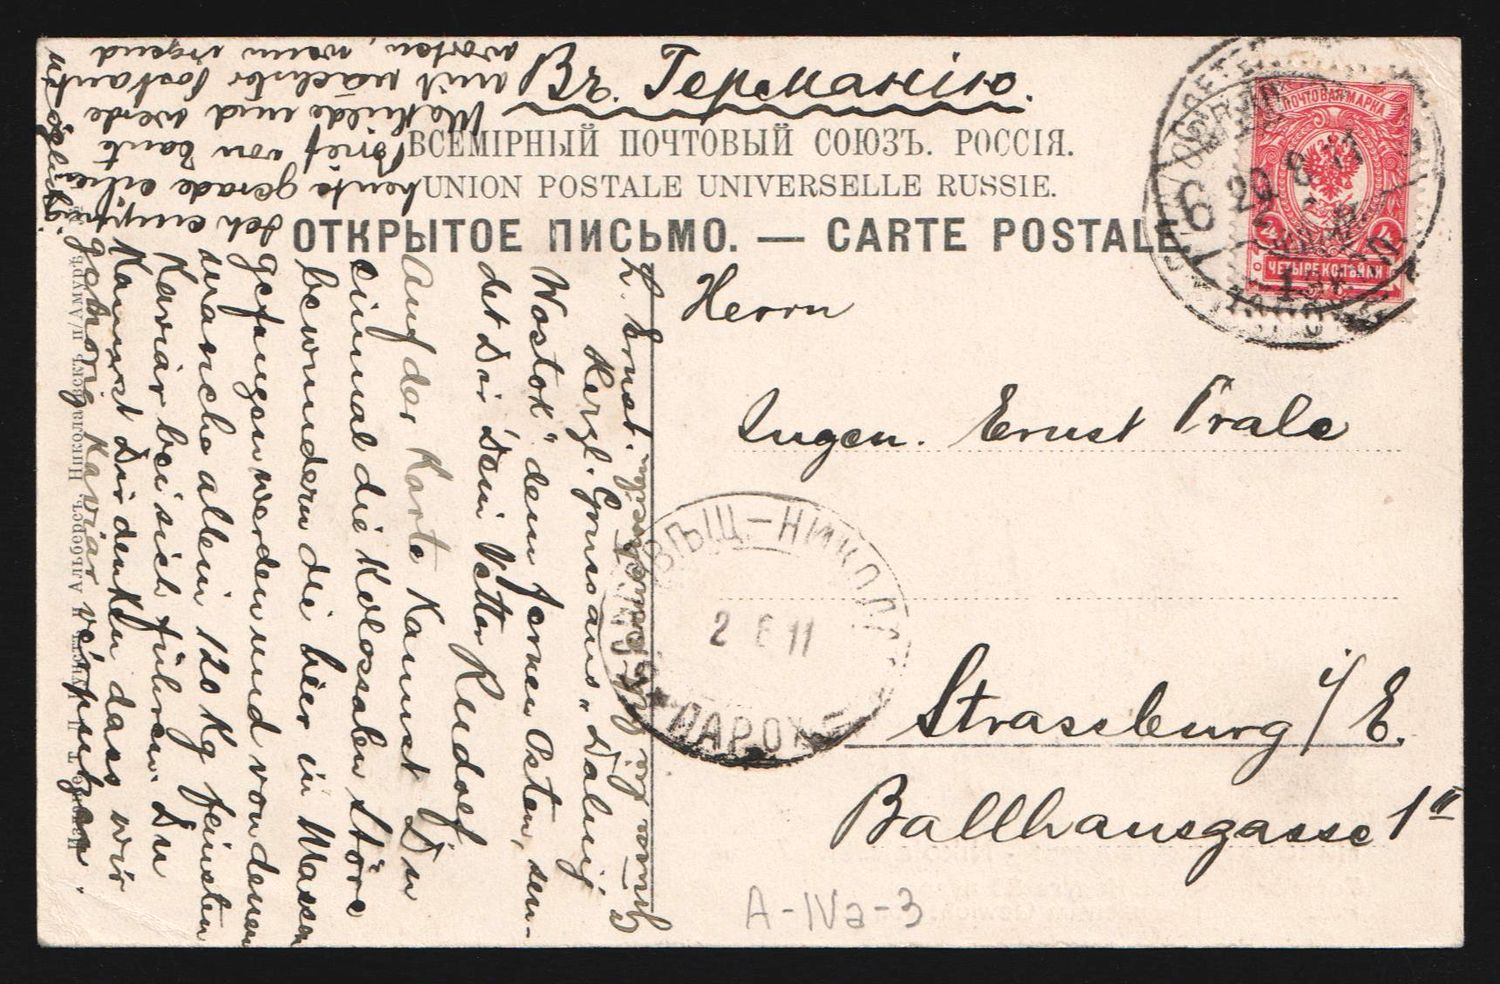 Въ Германію.
ВСЕМІРНЫЙ ПОЧТОВЫЙ СОЮЗЪ. РОССІЯ.
UNION POSTALE UNIVERSELLE RUSSIE.
ОТКРЫТОЕ ПИСЬМО. — CARTE POSTALE
ПОЧТОВАЯ МАРКА
ЧЕТЫРЕ КОПѢЙКИ
6 20 6 11
Herrn
Ingen. Ernst Prale
Strassburg i/E.
Ballhausgasse 1II
БЛАГОВѢЩ-НИКОЛ
2 6 11
ПАРОХ
A-IVa-3
L. Ernst.
Herzl. Gruss aus „Dalnij
Wostok" dem fernen Osten, sen-
det Dir Dein Vetter Rudolf
Auf der Karte kannst Du
einmal die kolossalen Störe
bewundern die hier in Massen
gefangen werden und von denen
manche allein 120 Kg feinsten
Kaviar bei sich führen. Du
kannst Dir denken dass wir
gehörig Kaviar verputzen.
Ich empfing
heute gerade einen
Brief von Tante
Mathilde und werde
mit nächster Post ant-
worten, wenn irgend
möglich
Николаевскъ н/Амуръ